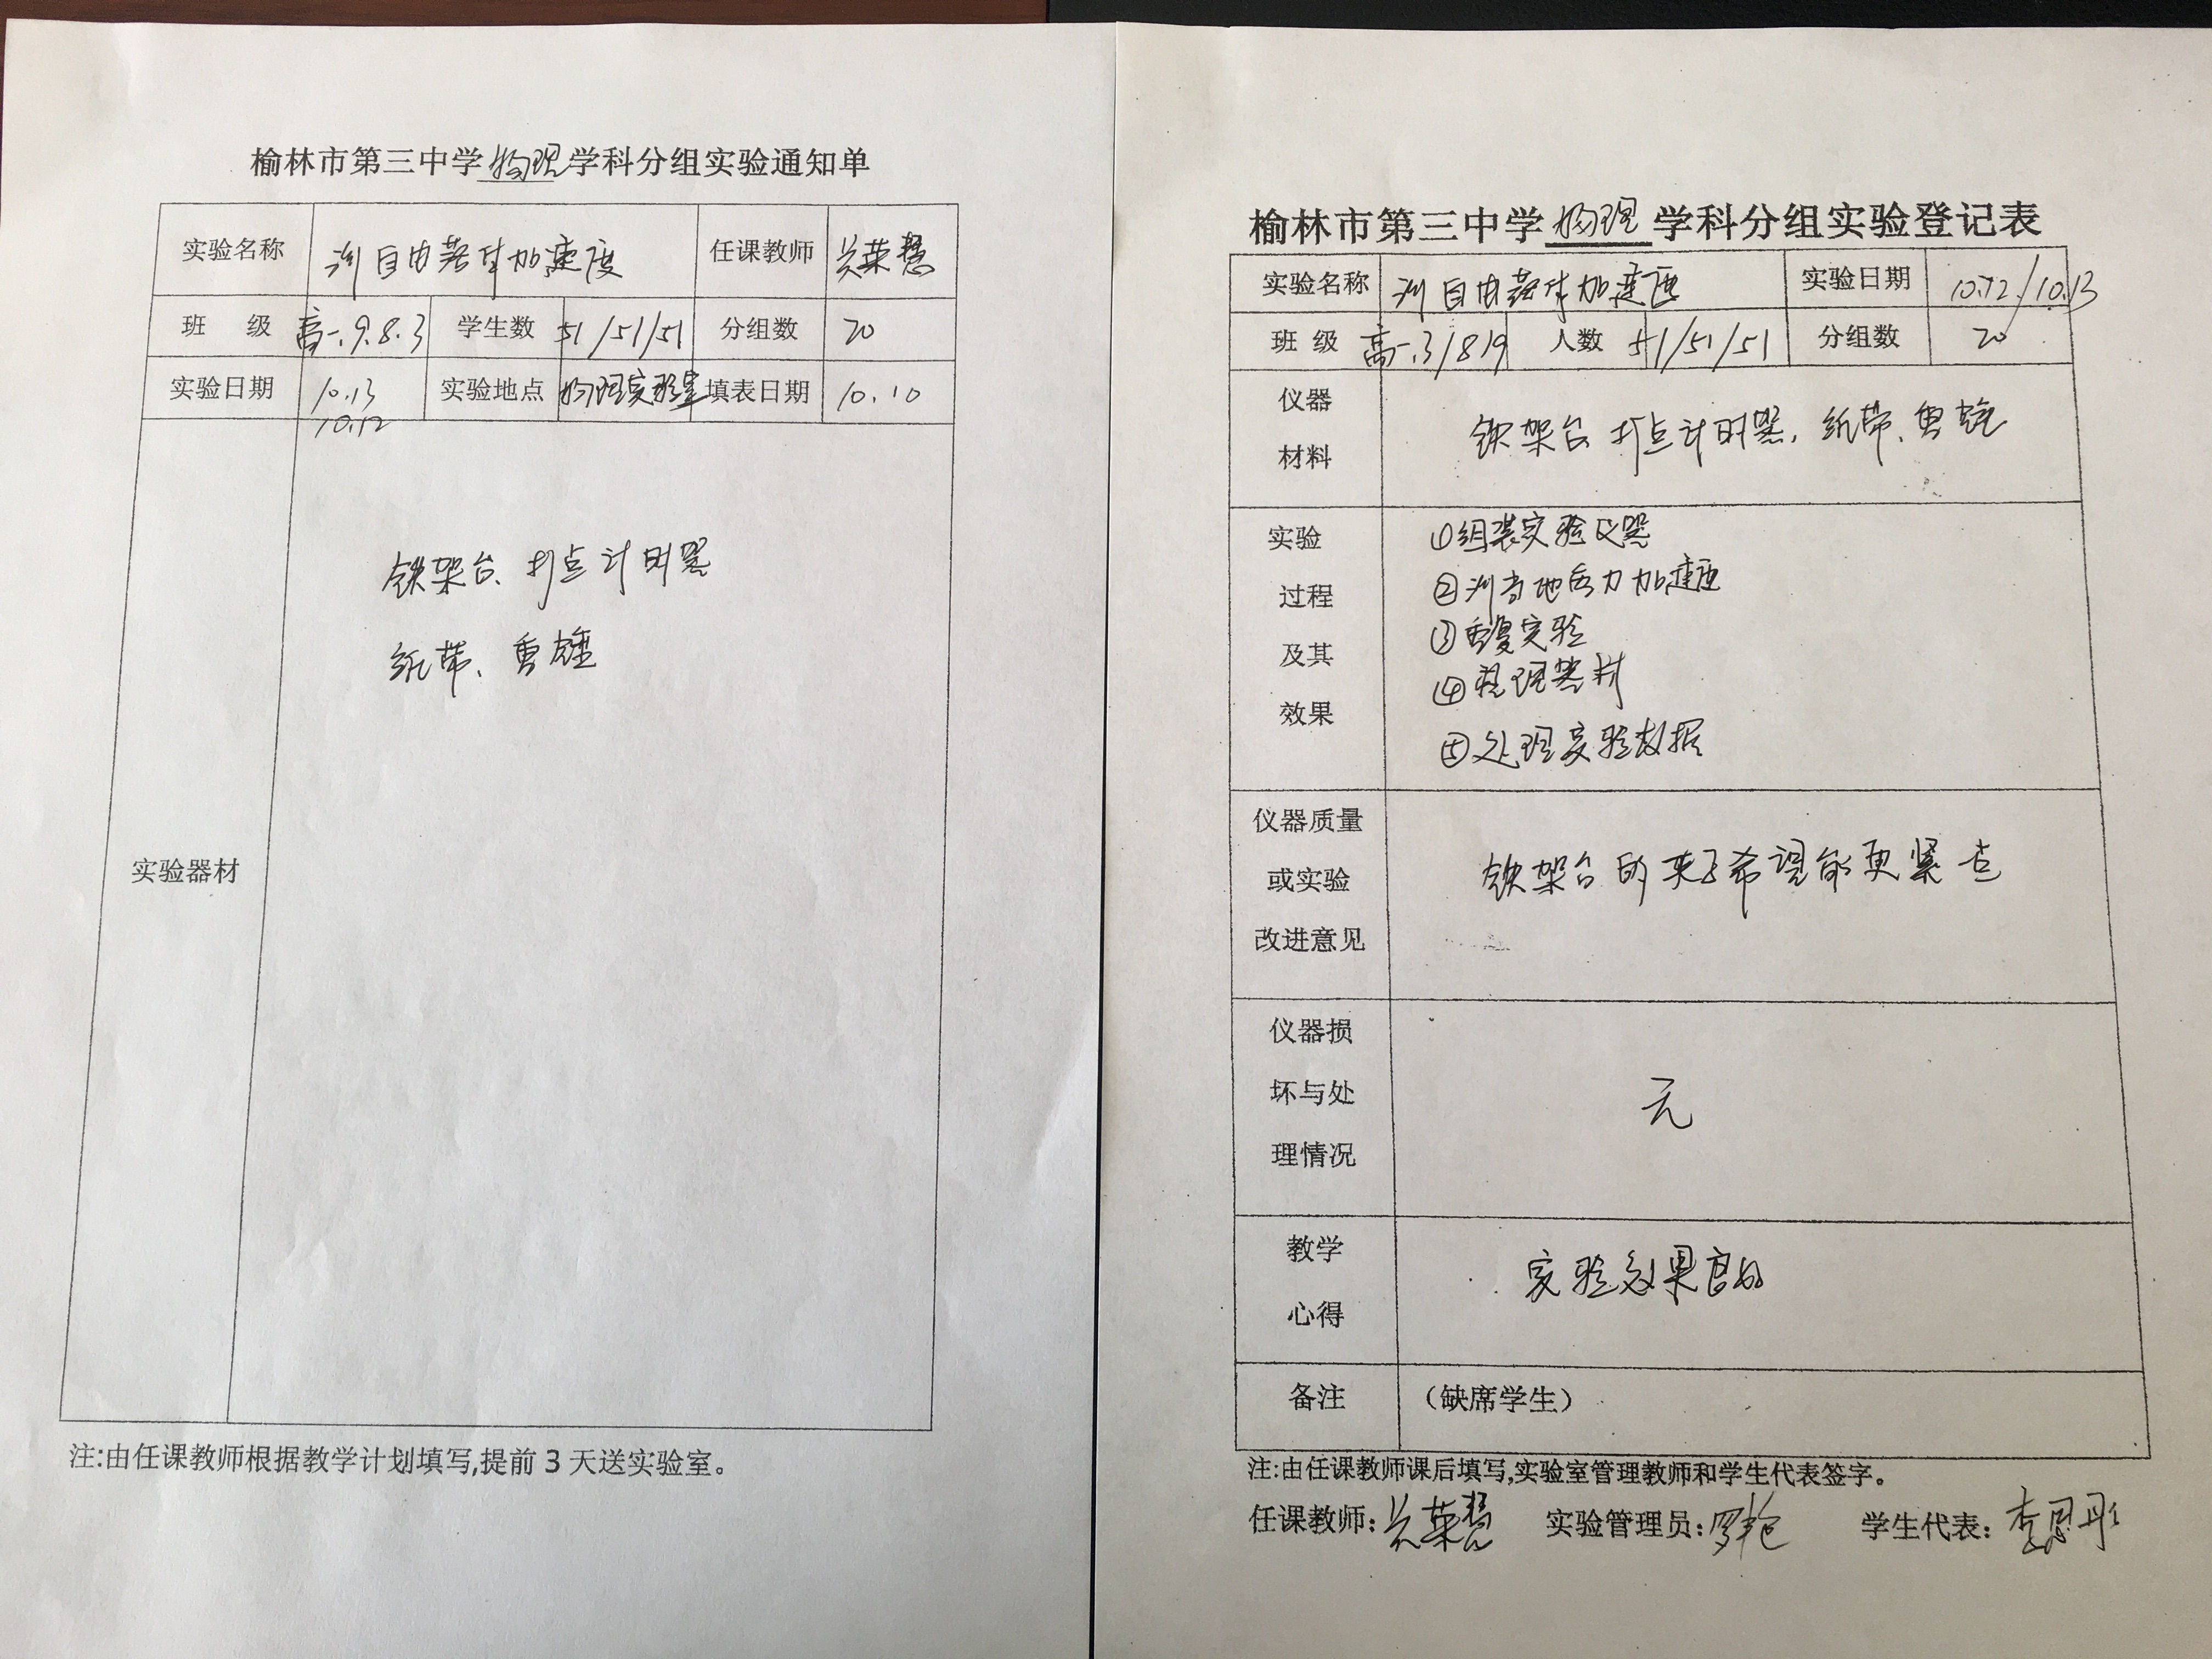 榆林市第三中学物理学科分组实验通知单
实验名称 测自由落体加速度 任课教师 荣慧
班 级 高一.9.8.3 学生数 51/51/51 分组数 20
实验日期 10.13 10.12 实验地点 物理实验室 填表日期 10.10
实验器材
铁架台、打点计时器
纸带、重锤
注:由任课教师根据教学计划填写,提前3天送实验室。
榆林市第三中学物理学科分组实验登记表
实验名称 测自由落体加速度 实验日期 10.12/10.13
班 级 高一.3/8/9 人数 51/51/51 分组数 20
仪器
材料
铁架台 打点计时器,纸带、重锤
实验
过程
及其
效果
①组装实验仪器
②测当地重力加速度
③重复实验
④整理器材
⑤处理实验数据
仪器质量
或实验
改进意见
铁架台的夹子希望能更紧点
仪器损
坏与处
理情况
无
教学
心得
实验效果良好
备注 (缺席学生)
注:由任课教师课后填写,实验室管理教师和学生代表签字。
任课教师: 荣慧 实验管理员: 罗 学生代表: 李思彤